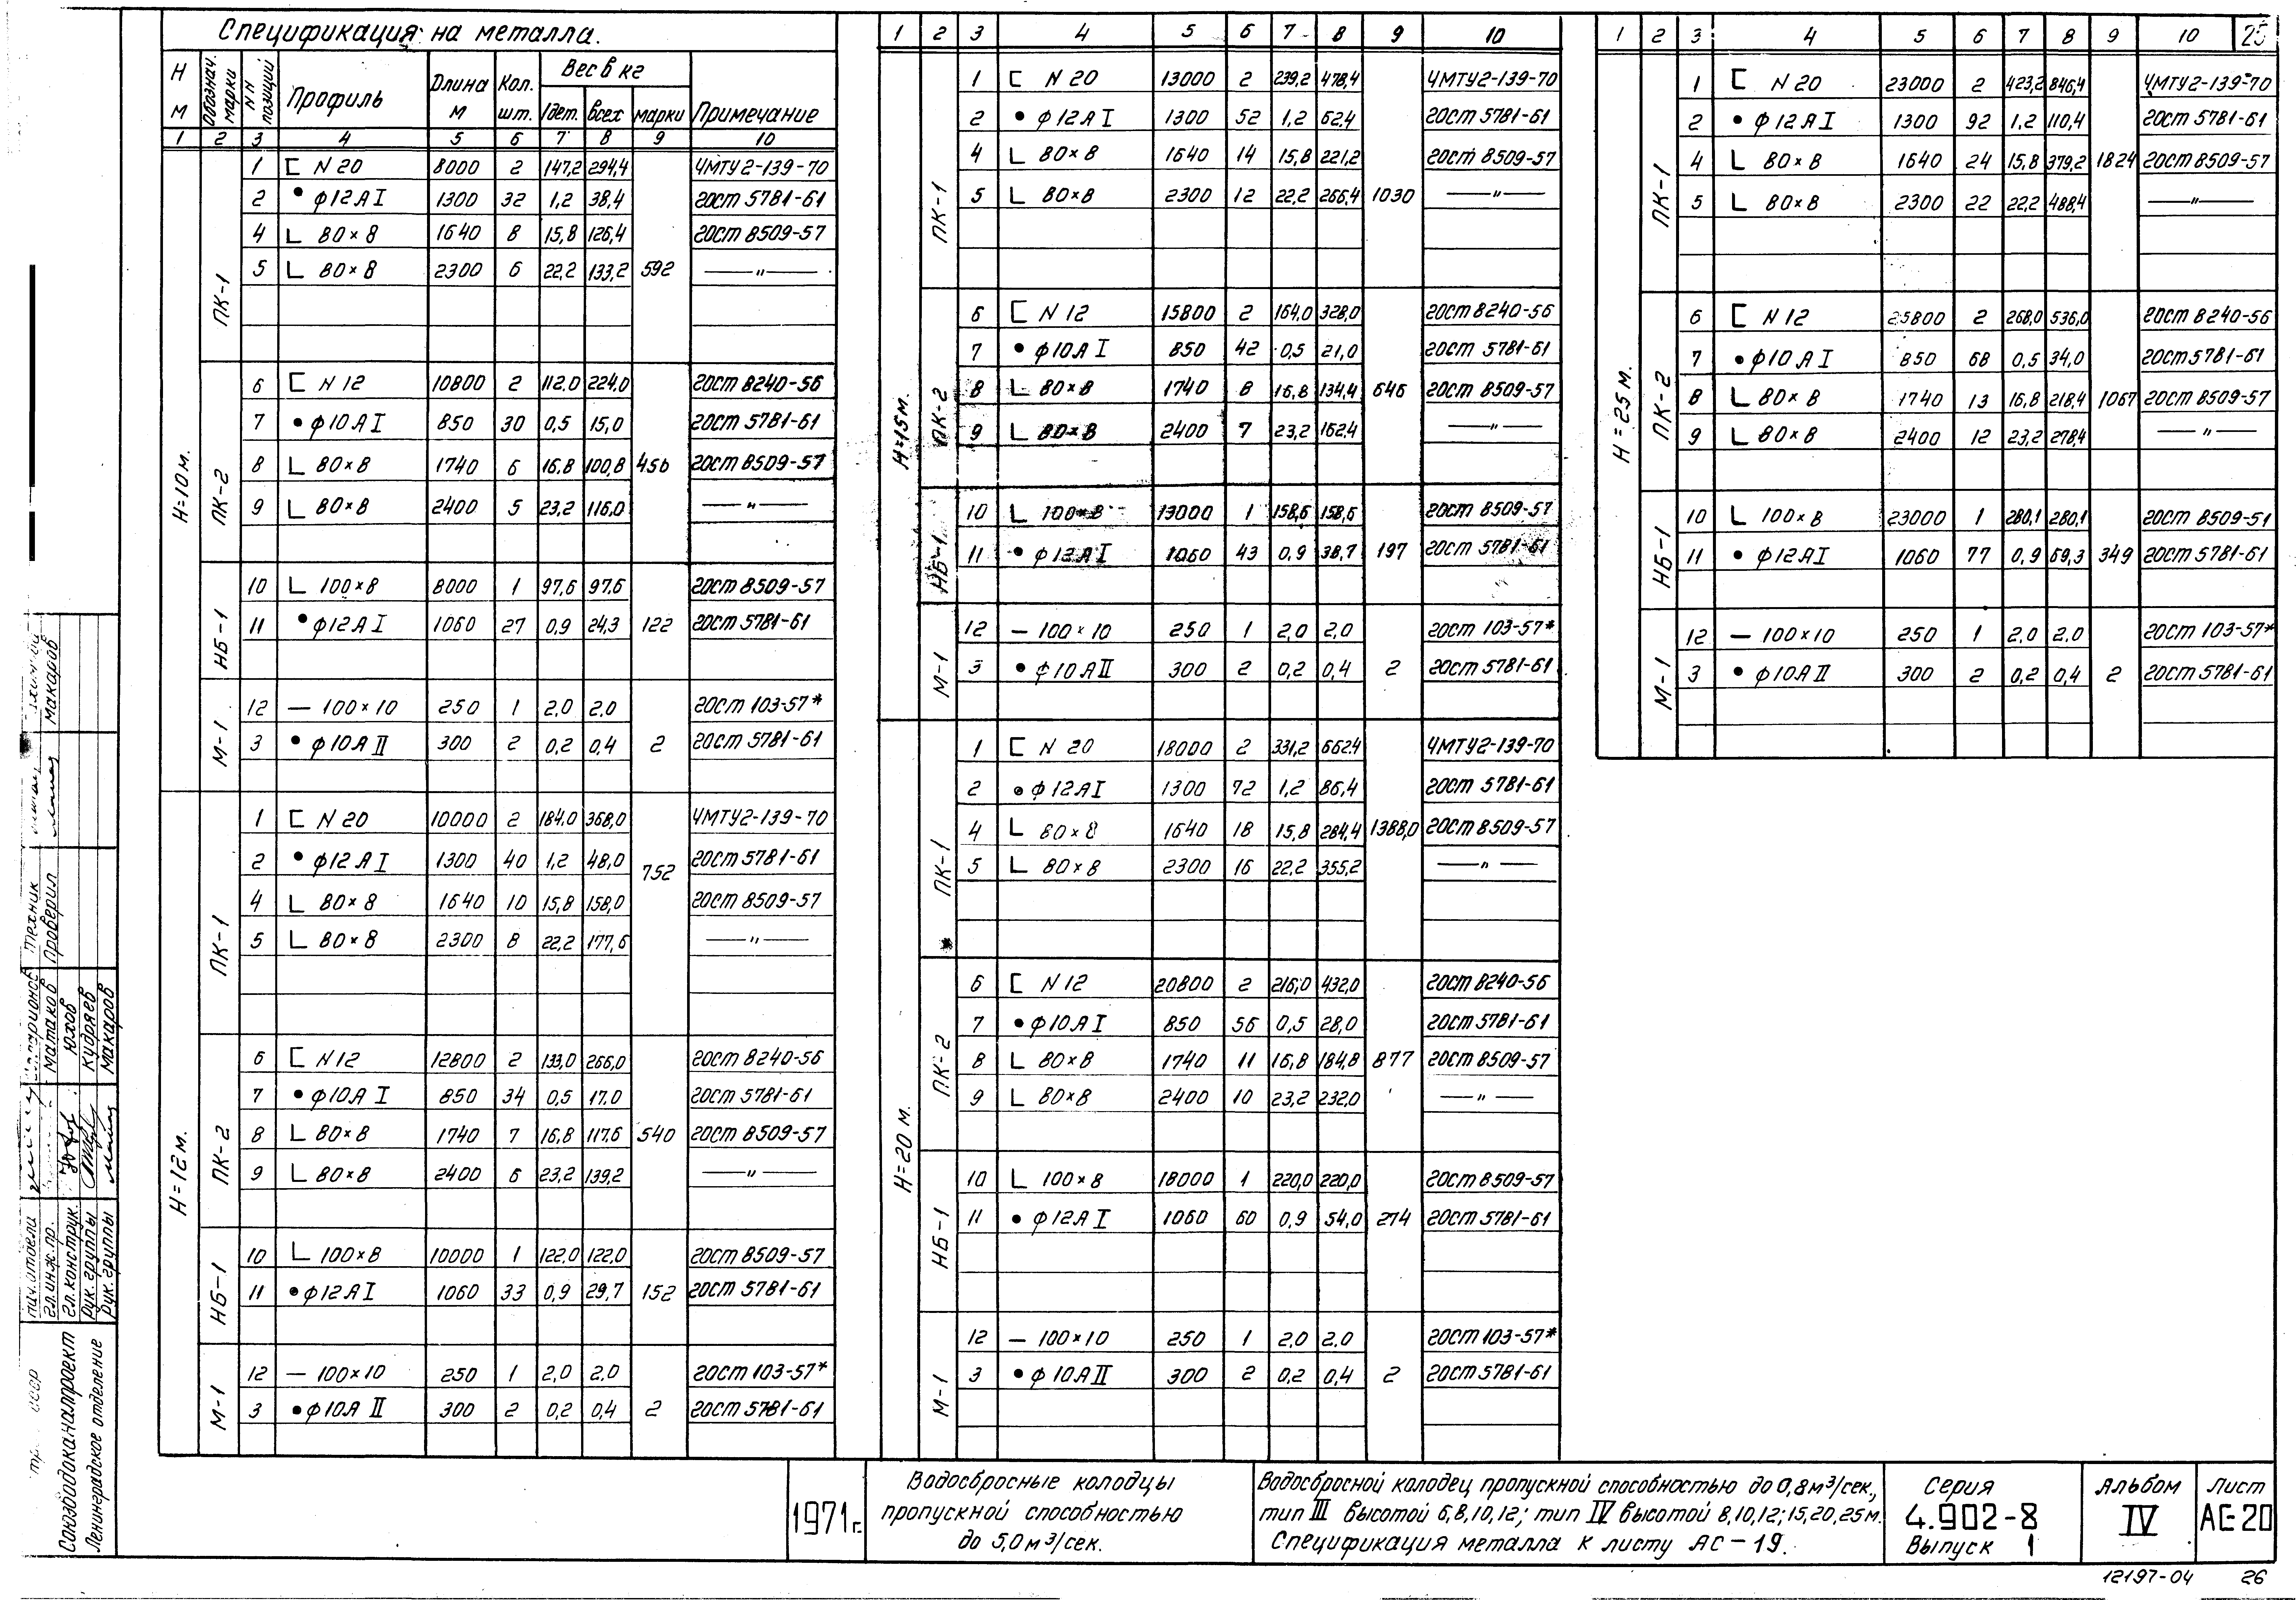 Спецификация на металла.
Н м | Обознач. марки | NN позиций | Профиль | Длина м | Кол. шт. | Вес в кг 1дет. | всех | марки | Примечание
1 2 3 4 5 6 7 8 9 10
Н=10м.
ПК-1
1 [ N 20 8000 2 147,2 294,4 ЧМТУ2-139-70
2 • ф12АI 1300 32 1,2 38,4 гост 5781-61
4 L 80×8 1640 8 15,8 126,4 гост 8509-57
5 L 80×8 2300 6 22,2 133,2 592 —"—
ПК-2
6 [ N 12 10800 2 112,0 224,0 гост 8240-56
7 • ф10АI 850 30 0,5 15,0 гост 5781-61
8 L 80×8 1740 6 16,8 100,8 456 гост 8509-57
9 L 80×8 2400 5 23,2 116,0 —"—
НБ-1
10 L 100×8 8000 1 97,6 97,6 гост 8509-57
11 • ф12АI 1060 27 0,9 24,3 122 гост 5781-61
М-1
12 — 100×10 250 1 2,0 2,0 гост 103-57*
3 • ф10АII 300 2 0,2 0,4 2 гост 5781-61
Н=12м.
ПК-1
1 [ N 20 10000 2 184,0 368,0 ЧМТУ2-139-70
2 • ф12АI 1300 40 1,2 48,0 752 гост 5781-61
4 L 80×8 1640 10 15,8 158,0 гост 8509-57
5 L 80×8 2300 8 22,2 177,6 —"—
ПК-2
6 [ N 12 12800 2 133,0 266,0 гост 8240-56
7 • ф10АI 850 34 0,5 17,0 гост 5781-61
8 L 80×8 1740 7 16,8 117,6 540 гост 8509-57
9 L 80×8 2400 6 23,2 139,2 —"—
НБ-1
10 L 100×8 10000 1 122,0 122,0 гост 8509-57
11 • ф12АI 1060 33 0,9 29,7 152 гост 5781-61
М-1
12 — 100×10 250 1 2,0 2,0 гост 103-57*
3 • ф10АII 300 2 0,2 0,4 2 гост 5781-61
1 2 3 4 5 6 7 8 9 10
Н=15м.
ПК-1
1 [ N 20 13000 2 239,2 478,4 ЧМТУ2-139-70
2 • ф12АI 1300 52 1,2 62,4 гост 5781-61
4 L 80×8 1640 14 15,8 221,2 гост 8509-57
5 L 80×8 2300 12 22,2 266,4 1030 —"—
ПК-2
6 [ N 12 15800 2 164,0 328,0 гост 8240-56
7 • ф10АI 850 42 0,5 21,0 гост 5781-61
8 L 80×8 1740 8 16,8 134,4 646 гост 8509-57
9 L 80×8 2400 7 23,2 162,4 —"—
НБ-1
10 L 100×8 13000 1 158,6 158,6 гост 8509-57
11 • ф12АI 1060 43 0,9 38,7 197 гост 5781-61
М-1
12 — 100×10 250 1 2,0 2,0 гост 103-57*
3 • ф10АII 300 2 0,2 0,4 2 гост 5781-61
Н=20 м.
ПК-1
1 [ N 20 18000 2 331,2 662,4 ЧМТУ2-139-70
2 • ф12АI 1300 72 1,2 86,4 гост 5781-61
4 L 80×8 1640 18 15,8 284,4 1388,0 гост 8509-57
5 L 80×8 2300 16 22,2 355,2 —"—
ПК-2
6 [ N 12 20800 2 216,0 432,0 гост 8240-56
7 • ф10АI 850 56 0,5 28,0 гост 5781-61
8 L 80×8 1740 11 16,8 184,8 877 гост 8509-57
9 L 80×8 2400 10 23,2 232,0 —"—
НБ-1
10 L 100×8 18000 1 220,0 220,0 гост 8509-57
11 • ф12АI 1060 60 0,9 54,0 274 гост 5781-61
М-1
12 — 100×10 250 1 2,0 2,0 гост 103-57*
3 • ф10АII 300 2 0,2 0,4 2 гост 5781-61
1 2 3 4 5 6 7 8 9 10 25
Н=25м.
ПК-1
1 [ N 20 23000 2 423,2 846,4 ЧМТУ2-139-70
2 • ф12АI 1300 92 1,2 110,4 гост 5781-61
4 L 80×8 1640 24 15,8 379,2 1824 гост 8509-57
5 L 80×8 2300 22 22,2 488,4 —"—
ПК-2
6 [ N 12 25800 2 268,0 536,0 гост 8240-56
7 • ф10АI 850 68 0,5 34,0 гост 5781-61
8 L 80×8 1740 13 16,8 218,4 1067 гост 8509-57
9 L 80×8 2400 12 23,2 278,4 —"—
НБ-1
10 L 100×8 23000 1 280,1 280,1 гост 8509-51
11 • ф12АI 1060 77 0,9 69,3 349 гост 5781-61
М-1
12 — 100×10 250 1 2,0 2,0 гост 103-57*
3 • ф10АII 300 2 0,2 0,4 2 гост 5781-61
1971г.
Водосбросные колодцы
пропускной способностью
до 5,0м³/сек.
Водосбросной колодец пропускной способностью до 0,8м³/сек.,
тип III высотой 6,8,10,12; тип IV высотой 8,10,12;15,20,25м.
Спецификация металла к листу АС-19.
Серия
4.902-8
Выпуск 1
Альбом
IV
Лист
АС-20
12197-04 26
Союзводоканалпроект
Ленинградское отделение
нач.отдела
гл.инж.пр. Матаков
гл.конструк. Юхов
Рук.группы Кудряев
Рук.группы Макаров
Техник
Проверил Макаров